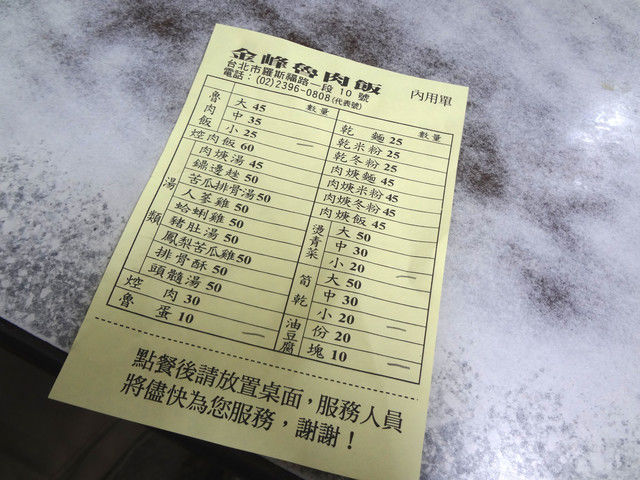 金峰魯肉飯
台北市羅斯福路一段 10 號
電話：(02)2396-0808(代表號)
內用單
數量
魯肉飯
大 45
中 35
小 25 一
焢肉飯 60
湯類
肉焿湯 45
鍋邊銼 50
苦瓜排骨湯50
人蔘雞 50
蛤蜊雞 50
豬肚湯 50
鳳梨苦瓜雞50
排骨酥 50
頭髓湯 50
焢 肉 30
魯 蛋 10 一
數量
乾 麵 25
乾米粉 25
乾冬粉 25
肉焿麵 45
肉焿米粉 45
肉焿冬粉 45
肉焿飯 45
燙青菜
大 50
中 30
小 20 一
筍乾
大 50
中 30
小 20 一
油豆腐
份 20
塊 10 一
點餐後請放置桌面，服務人員
將儘快為您服務，謝謝！